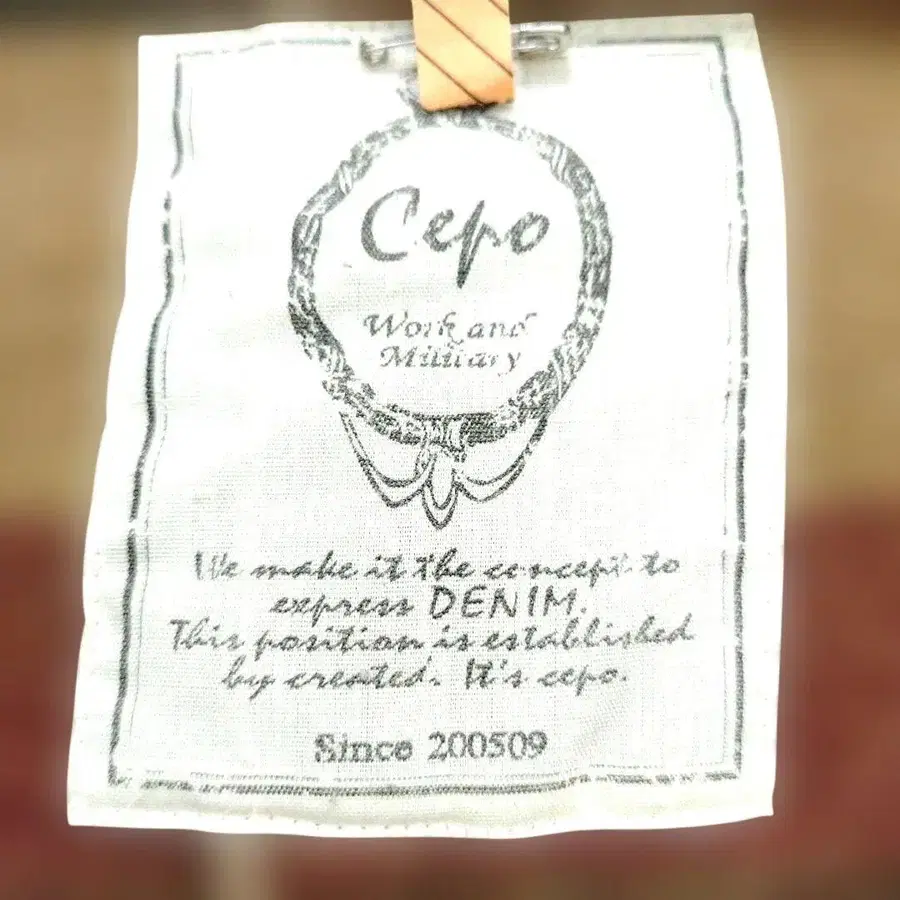 Cepo
Work and
Military
We make it the concept to
express DENIM.
This position is established
by created. It's cepo.
Since 200509